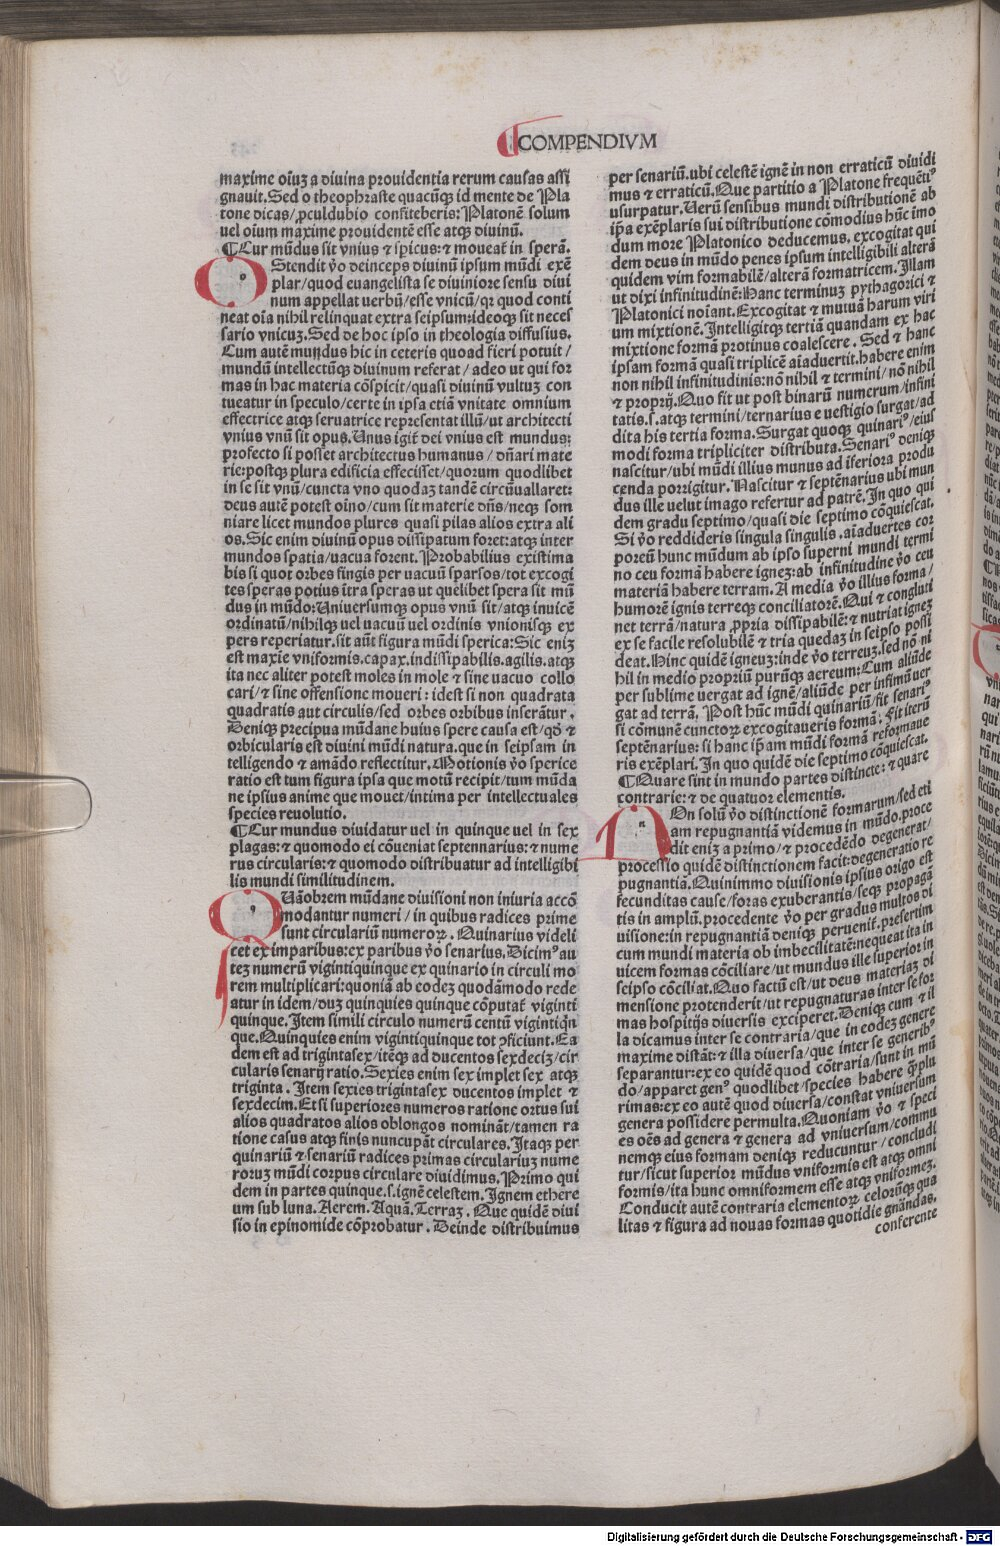 COMPENDIVM
maxime oiuꝫ a diuina prouidentia rerum causas assi
gnauit. Sed o theophraste quacūqꝫ id mente de Pla
tone dicas/ ꝓculdubio confiteberis: Platonē solum
uel oium maxime prouidentē esse atqꝫ diuinū.
¶Cur mūdus sit vnius ⁊ spicus: ⁊ moueat̄ in sperā.
Ostendit ꝟo deinceps diuinū ipsum mūdi exē
plar/quod euangelista se diuiniore sensu diui
num appellat uerbū/esse vnicū/qꝛ quod conti
neat oīa nihil relinquat extra seipsum: ideoqꝫ sit neces
sario vnicuꝫ. Sed de hoc ipso in theologia diffusius.
Cum autē mundus hic in ceteris quoad fieri potuit /
mundū intellectūqꝫ diuinum referat / adeo ut qui for
mas in hac materia cōspicit/quasi diuinū vultuꝫ con
tueatur in speculo/certe in ipsa etiā vnitate omnium
effectrice atqꝫ seruatrice representat illū/ut architecti
vnius vnū sit opus. Unus igit̄ dei vnius est mundus:
profecto si posset architectus humanus / dn̄ari mate
rie: postqꝫ plura edificia effecisset/quorum quodlibet
in se sit vnū/cuncta vno quodaꝫ tandē circūuallaret:
deus autē potest oīno/cum sit materie dn̄s/neqꝫ som
niare licet mundos plures quasi pilas alios extra ali
os. Sic enim diuinū opus dissipatum foret: atqꝫ inter
mundos spatia/uacua forent. Probabilius existima
bis si quot orbes fingis per uacuū sparsos/tot excogi
tes speras potius ītra speras ut quēlibet spera sit mū
dus in mūdo: Uniuersumqꝫ opus vnū sit/atqꝫ inuicē
ordinatū/nihilqꝫ uel uacuū uel ordinis vnionisqꝫ ex
pers reperiatur. sit aūt figura mūdi sperica: Sic eniꝫ
est maxīe vniformis. capax. indissipabilis. agilis. atqꝫ
ita nec aliter potest moles in mole ⁊ sine uacuo collo
cari/⁊ sine offensione moueri: idest si non quadrata
quadratis aut circulis/sed orbes orbibus inserātur.
Deniqꝫ precipua mūdane huius spere causa est/qꝺ ⁊
orbicularis est diuini mūdi natura. que in seipsam in
telligendo ⁊ amādo reflectitur. Motionis ꝟo sperice
ratio est tum figura ipsa que motū recipit/tum mūda
ne ipsius anime que mouet/intima per intellectuales
species reuolutio.
¶Cur mundus diuidatur uel in quinque uel in sex
plagas: ⁊ quomodo ei cōueniat septennarius: ⁊ nume
rus circularis: ⁊ quomodo distribuatur ad intelligibi
lis mundi similitudinem.
Quāobrem mūdane diuisioni non iniuria accō
modantur numeri / in quibus radices prime
sunt circulariū numeroꝝ. Quinarius videli
cet ex imparibus: ex paribus ꝟo senarius. Dicimꝰ au
teꝫ numerū vigintiquinque ex quinario in circuli mo
rem multiplicari: quoniā ab eodeꝫ quodāmodo rede
atur in idem/duꝫ quinquies quinque cōputat̄ viginti
quinque. Item simili circulo numerū centū vigintiqn̄
que. Quinquies enim vigintiquinque tot ꝯficiunt. Ea
dem est ad trigintasex/itēqꝫ ad ducentos sexdeciꝫ/cir
cularis senarij ratio. Sexies enim sex implet sex atqꝫ
triginta. Item sexies trigintasex ducentos implet ⁊
sexdecim. Et si superiores numeros ratione ortus sui
alios quadratos alios oblongos nomināt/tamen ra
tione casus atqꝫ finis nuncupāt circulares. Itaqꝫ per
quinariū ⁊ senariū radices primas circulariuꝫ nume
roruꝫ mūdi corpus circulare diuidimus. Primo qui
dem in partes quinque.s.ignē celestem. Ignem ethere
um sub luna. Aerem. Aquā. Terraꝫ. Que quidē diui
sio in epinomide cōprobatur. Deinde distribuimus
per senariū. ubi celestē ignē in non erraticū diuidi
mus ⁊ erraticū. Que partitio a Platone frequētiꝰ
usurpatur. Uerū sensibus mundi distributionē ab
ip̄a exēplaris sui distributione cōmodius hūc imo
dum more Platonico deducemus. excogitat qui
dem deus in mūdo penes ipsum intelligibili alterā
quidem vim formabilē/alterā formatricem. Illam
ut dixi infinitudinē: Hanc terminuꝫ pythagorici ⁊
Platonici noīant. Excogitat ⁊ mutuā harum viri
um mixtionē. Intelligitqꝫ tertiā quandam ex hac
mixtione formā protinus coalescere. Sed ⁊ hanc
ipsam formā quasi triplicē aīaduertit. habere enim
non nihil infinitudinis: nō nihil ⁊ termini/nō nihil
⁊ proprij. Quo fit ut post binarū numerum/infini
tatis.s.atqꝫ termini/ternarius e uestigio surgat/ad
dita his tertia forma. Surgat quoqꝫ quinariꝰ/eius
modi forma tripliciter distributa. Senariꝰ deniqꝫ
nascitur/ubi mūdi illius munus ad īferiora produ
cenda porrigitur. Nascitur ⁊ septēnarius ubi mun
dus ille uelut imago refertur ad patrē. In quo qui
dem gradu septimo/quasi die septimo cōquiescat.
Si ꝟo reddideris singula singulis. aīaduertes cor
poreū hunc mūdum ab ipso superni mundi termi
no ceu formā habere igneꝫ: ab infinitudine ꝟo ceu
materiā habere terram. A media ꝟo illius forma/
humorē ignis terreqꝫ conciliatorē. Qui ⁊ congluti
net terrā/natura ꝓpria dissipabilē: ⁊ nutriat igneꝫ
ex se facile resolubilē ⁊ tria quedaꝫ in seipso possi
deat. Hinc quidē igneuꝫ: inde ꝟo terreuꝫ. sed nō ni
hil in medio propriū purūqꝫ aereum: Cum aliūde
per sublime uergat ad ignē/aliūde per infimū uer
gat ad terrā. Post hūc mūdi quinariū/fit senariꝰ
si cōmunē cunctoꝝ excogitaueris formā. Fit iterū
septēnarius: si hanc ip̄am mūdi formā reformaue
ris exēplari. In quo quidē die septimo cōquiescat.
¶Quare sint in mundo partes distincte: ⁊ quare
contrarie: ⁊ de quatuor elementis.
Non solū ꝟo distinctionē formarum/sed eti
am repugnantiā videmus in mūdo. proce
dit eniꝫ a primo/⁊ procedēdo degenerat/
processio quidē distinctionem facit: degeneratio re
pugnantiā. Quinimmo diuisionis ipsius origo est
fecunditas cause/foras exuberantis/seqꝫ propagā
tis in amplū. procedente ꝟo per gradus multos di
uisione: in repugnantiā deniqꝫ peruenit̄. presertim
cum mundi materia ob imbecilitatē: nequeat ita in
uicem formas cōciliare/ut mundus ille superior in
seipso cōciliat. Quo factū est/ut deus materiaꝫ di
mensione protenderit/ut repugnaturas inter se for
mas hospitijs diuersis exciperet. Deniqꝫ cum ⁊ il
la dicamus inter se contraria/que in eodeꝫ genere
maxime distāt: ⁊ illa diuersa/que inter se generibꝰ
separantur: ex eo quidē quod cōtraria/sunt in mū
do/apparet genꝰ quodlibet/species habere q̄plu
rimas: ex eo autē quod diuersa/constat vniuersum
genera possidere permulta. Quoniam ꝟo ⁊ speci
es oēs ad genera ⁊ genera ad vniuersum/commu
nemqꝫ eius formam deniqꝫ reducuntur/concludi
tur/sicut superior mūdus vniformis est atqꝫ omni
formis/ita hunc omniformem esse atqꝫ vniformeꝫ.
Conducit autē contraria elementoꝝ celorūqꝫ qua
litas ⁊ figura ad nouas formas quotidie gnādas.
conferente
Digitalisierung gefördert durch die Deutsche Forschungsgemeinschaft - DFG